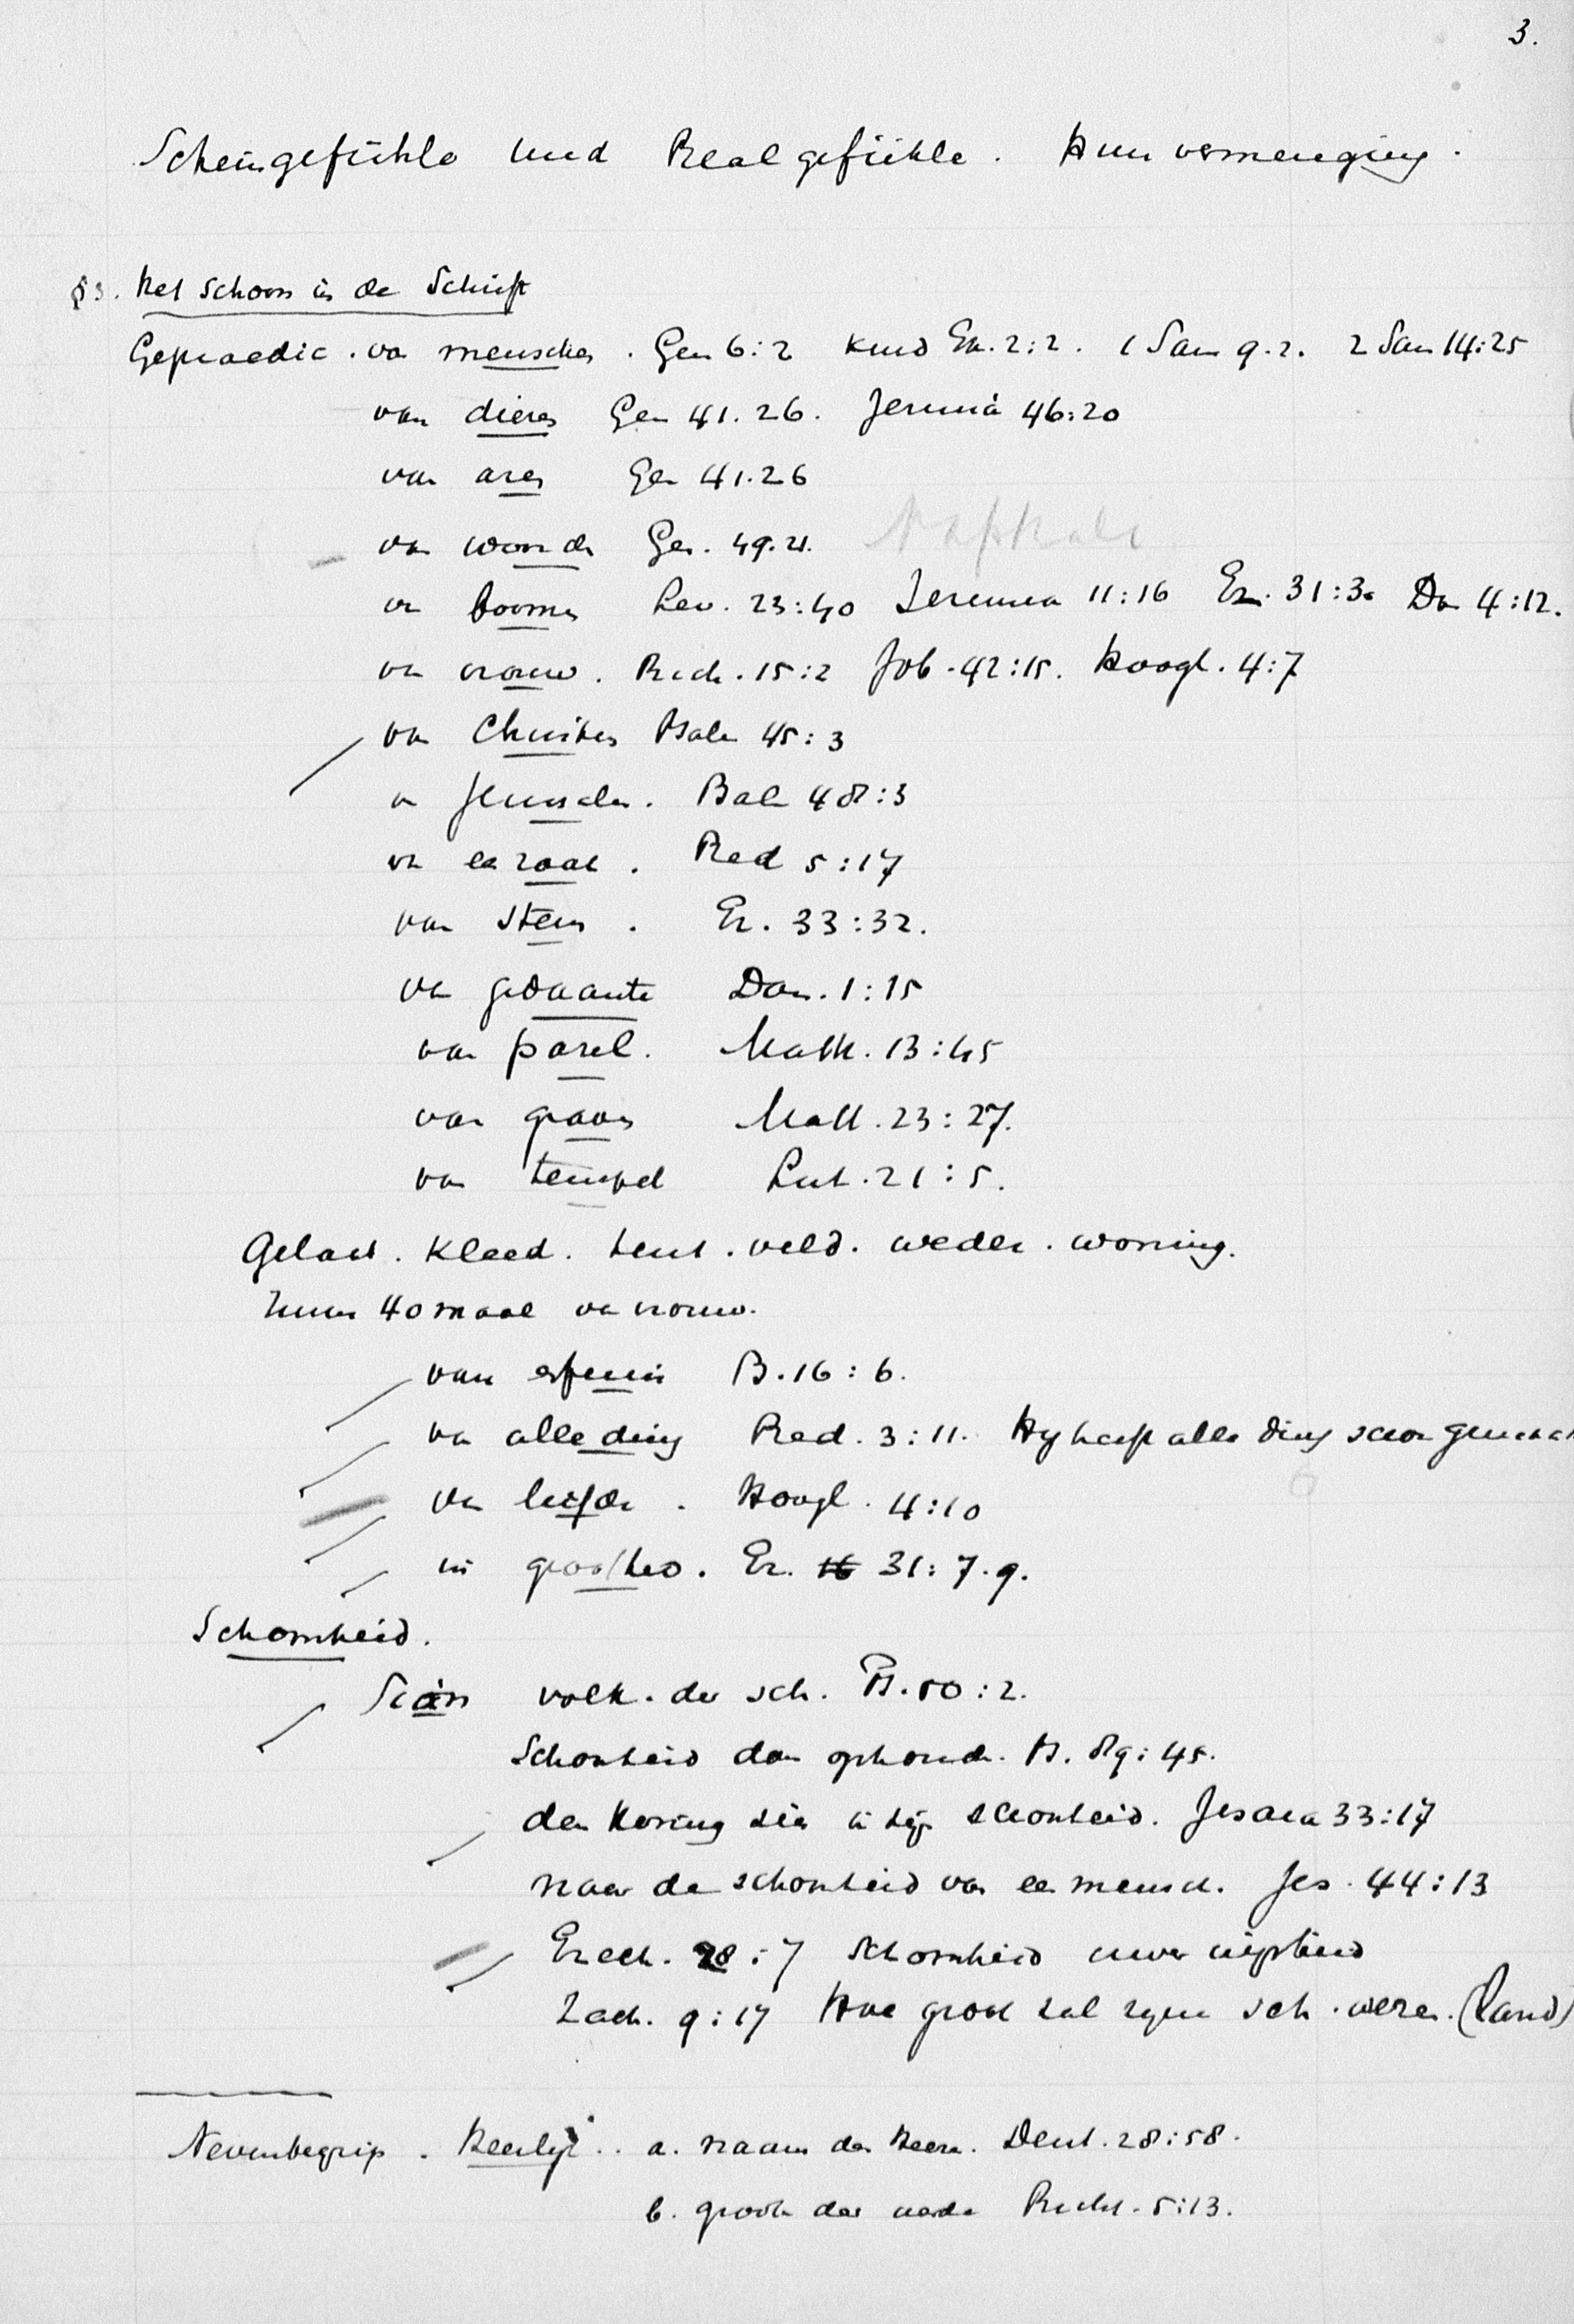 3.
Scheingefühle und Realgefühle. Hun vermenging.
§3. Het schoon in de Schrift
Gepraedic. van menschen. Gen 6:2 kind Ex. 2:2. 1 Sam 9.2. 2 Sam 14:25
van dieren Gen 41.26. Jeremia 46:20
van aren Gen 41.26
van woorden Gen. 49.21. Naphtali
van boomen Lev. 23:40 Jeremia 11:16 Ez. 31:3. Dan 4:12.
van vrouw. Rich. 15:2 Job. 42:15. Hoogl. 4:7
van Christus Psalm 45:3
van Jerusalem. Psalm 48:3
van een zaak. Pred 5:17
van stem. Ez. 33:32.
van gedaante Dan. 1:15
van parel. Matth. 13:45
van graven Matt. 23:27.
van tempel Luk. 21:5.
Gelaat. Kleed. tent. veld. weder. woning.
Ruim 40 maal van vrouw.
van erfenis Ps. 16:6.
van alle ding Pred. 3:11. Hij heeft alle ding schoon gemaakt
van liefde. Hoogl. 4:10
in grootheid. Ez. 16 31:7.9.
Schoonheid.
Sion volk. der sch. Ps. 50:2.
Schoonheid doen ophouden. Ps. 89:45.
den Koning zien in zijn schoonheid. Jesaia 33:17
naar de schoonheid van een mensch. Jes. 44:13
Ezech. 28:7 Schoonheid uwer wijsheid
Zach. 9:17 Hoe groot zal zijne sch. wezen. (Land)
Nevenbegrip. Heerlijk.. a. naam des Heeren. Deut. 28:58.
b. groote der aarde Richt. 5:13.